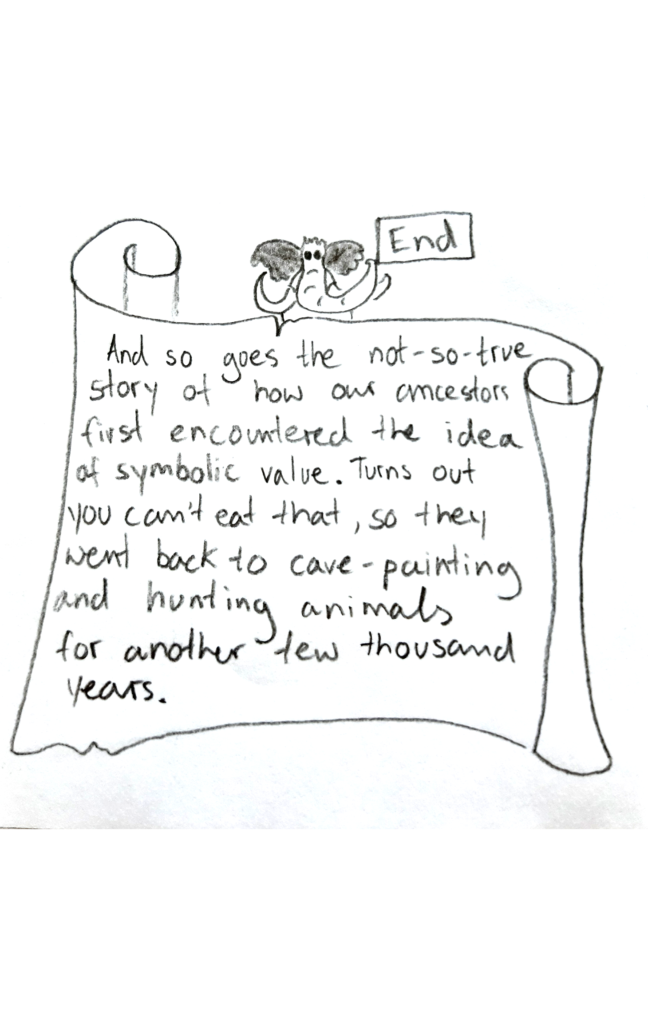 End
And so goes the not-so-true
story of how our ancestors
first encountered the idea
of symbolic value. Turns out
you can't eat that, so they
went back to cave-painting
and hunting animals
for another few thousand
years.